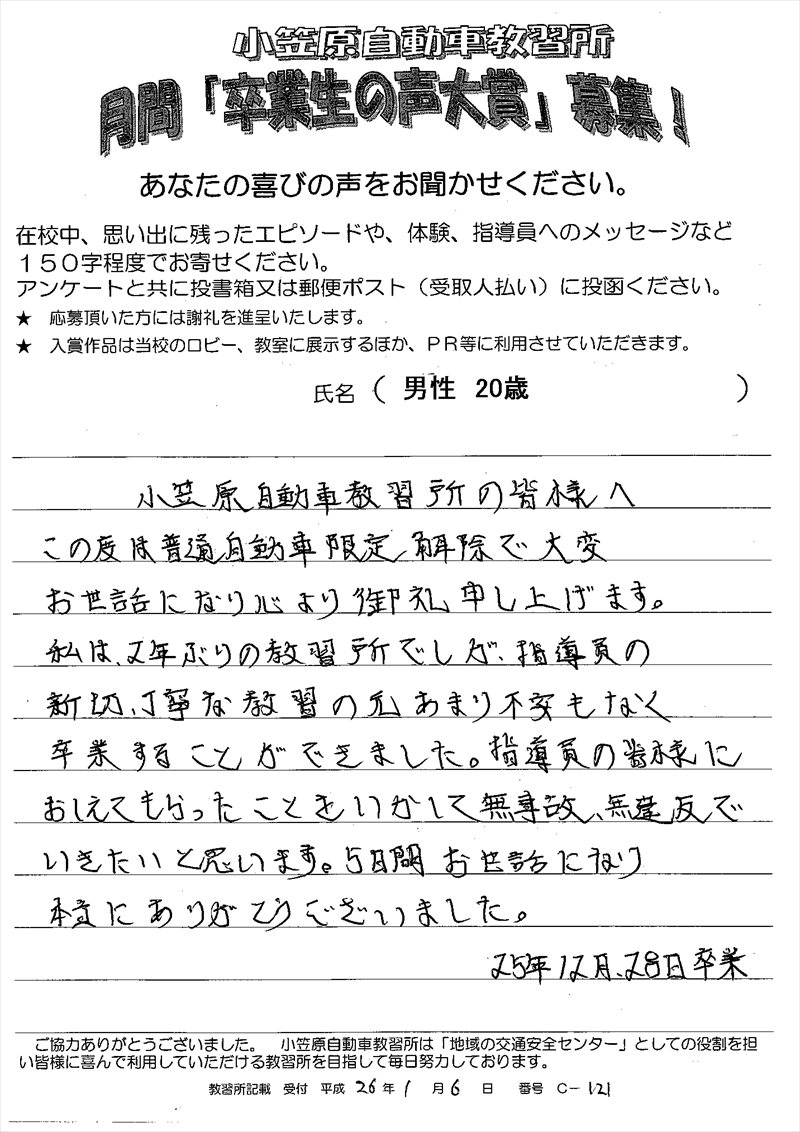 小笠原自動車教習所
月間「卒業生の声大賞」募集！
あなたの喜びの声をお聞かせください。
在校中、思い出に残ったエピソードや、体験、指導員へのメッセージなど
１５０字程度でお寄せください。
アンケートと共に投書箱又は郵便ポスト（受取人払い）に投函ください。
★ 応募頂いた方には謝礼を進呈いたします。
★ 入賞作品は当校のロビー、教室に展示するほか、ＰＲ等に利用させていただきます。
氏名（ 男性 20歳 ）
小笠原自動車教習所の皆様へ
この度は普通自動車限定解除で大変
お世話になり心より御礼申し上げます。
私は、2年ぶりの教習所でしが、指導員の
新切、丁寧な教習の元あまり不安もなく
卒業することができました。指導員の皆様に
おしえてもらったことをいかして無事故、無違反で
いきたいと思います。5日間お世話になり
本当にありがとうございました。
25年12月、28日卒業
ご協力ありがとうございました。 小笠原自動車教習所は「地域の交通安全センター」としての役割を担
い皆様に喜んで利用していただける教習所を目指して毎日努力しております。
教習所記載 受付 平成 26年 1 月 6 日 番号 C－121